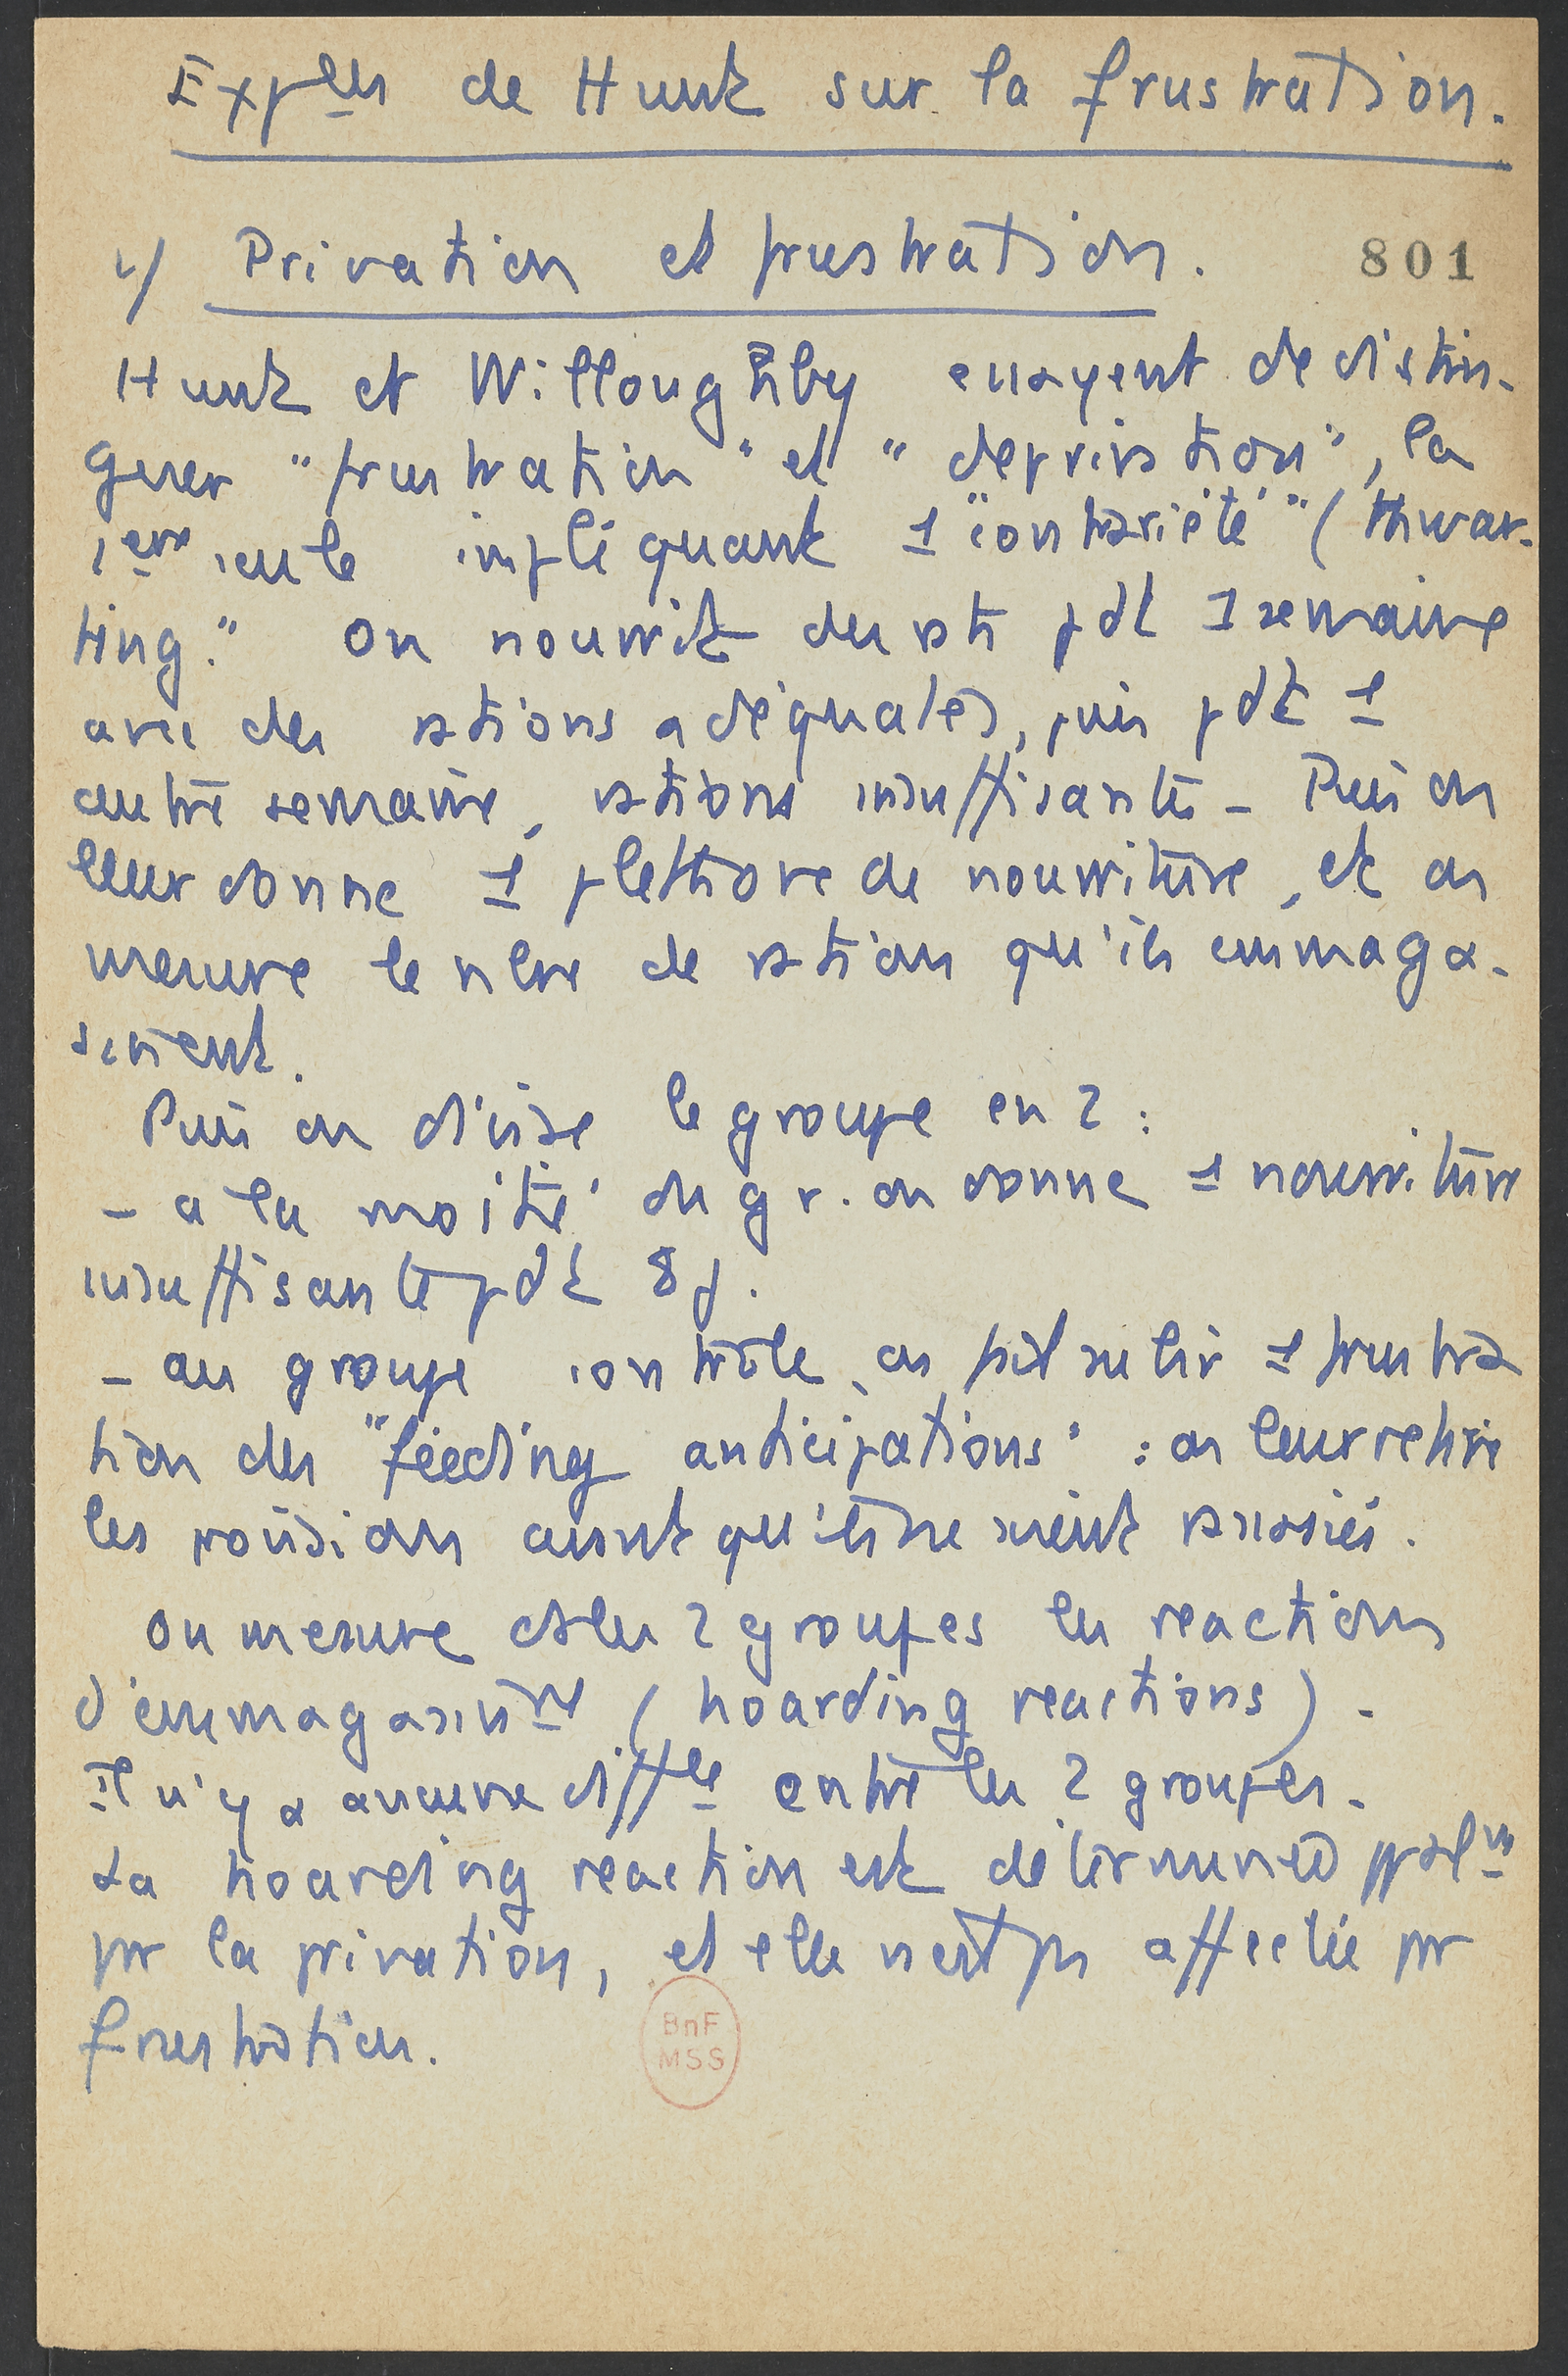 Exp^ces de Hunt sur la frustration.
1/ Privation et frustration.
801
Hunt et Willoughby essayent de distin-
guer "frustration" et "deprivation", la
1ère seule impliquant 1 "contrariété" (thwar-
ting." On nourrit des rats pdt 1 semaine
avec des rations adéquates, puis pdt 1
autre semaine, rations insuffisantes - Puis on
leur donne 1 plethore de nourriture, et on
mesure le nbre de ration qu'ils emmaga-
sinent.
Puis on divise le groupe en 2 :
- a la moitié du gr. on donne 1 nourriture
insuffisante pdt 8 j.
- au groupe contrôle, on fait subir 1 frustra
tion des "feeding anticipations" : on leur retire
les provisions avant qu'ils ne soient rassasiés.
On mesure ds les 2 groupes les reactions
d'emmagasin^nt (hoarding reactions) -
Il n'y a aucune diff^ce entre les 2 groupes -
La hoarding reaction est déterminée ppal^mt
par la privation, et elle n'est pas affectée par
frustration.
BnF
MSS